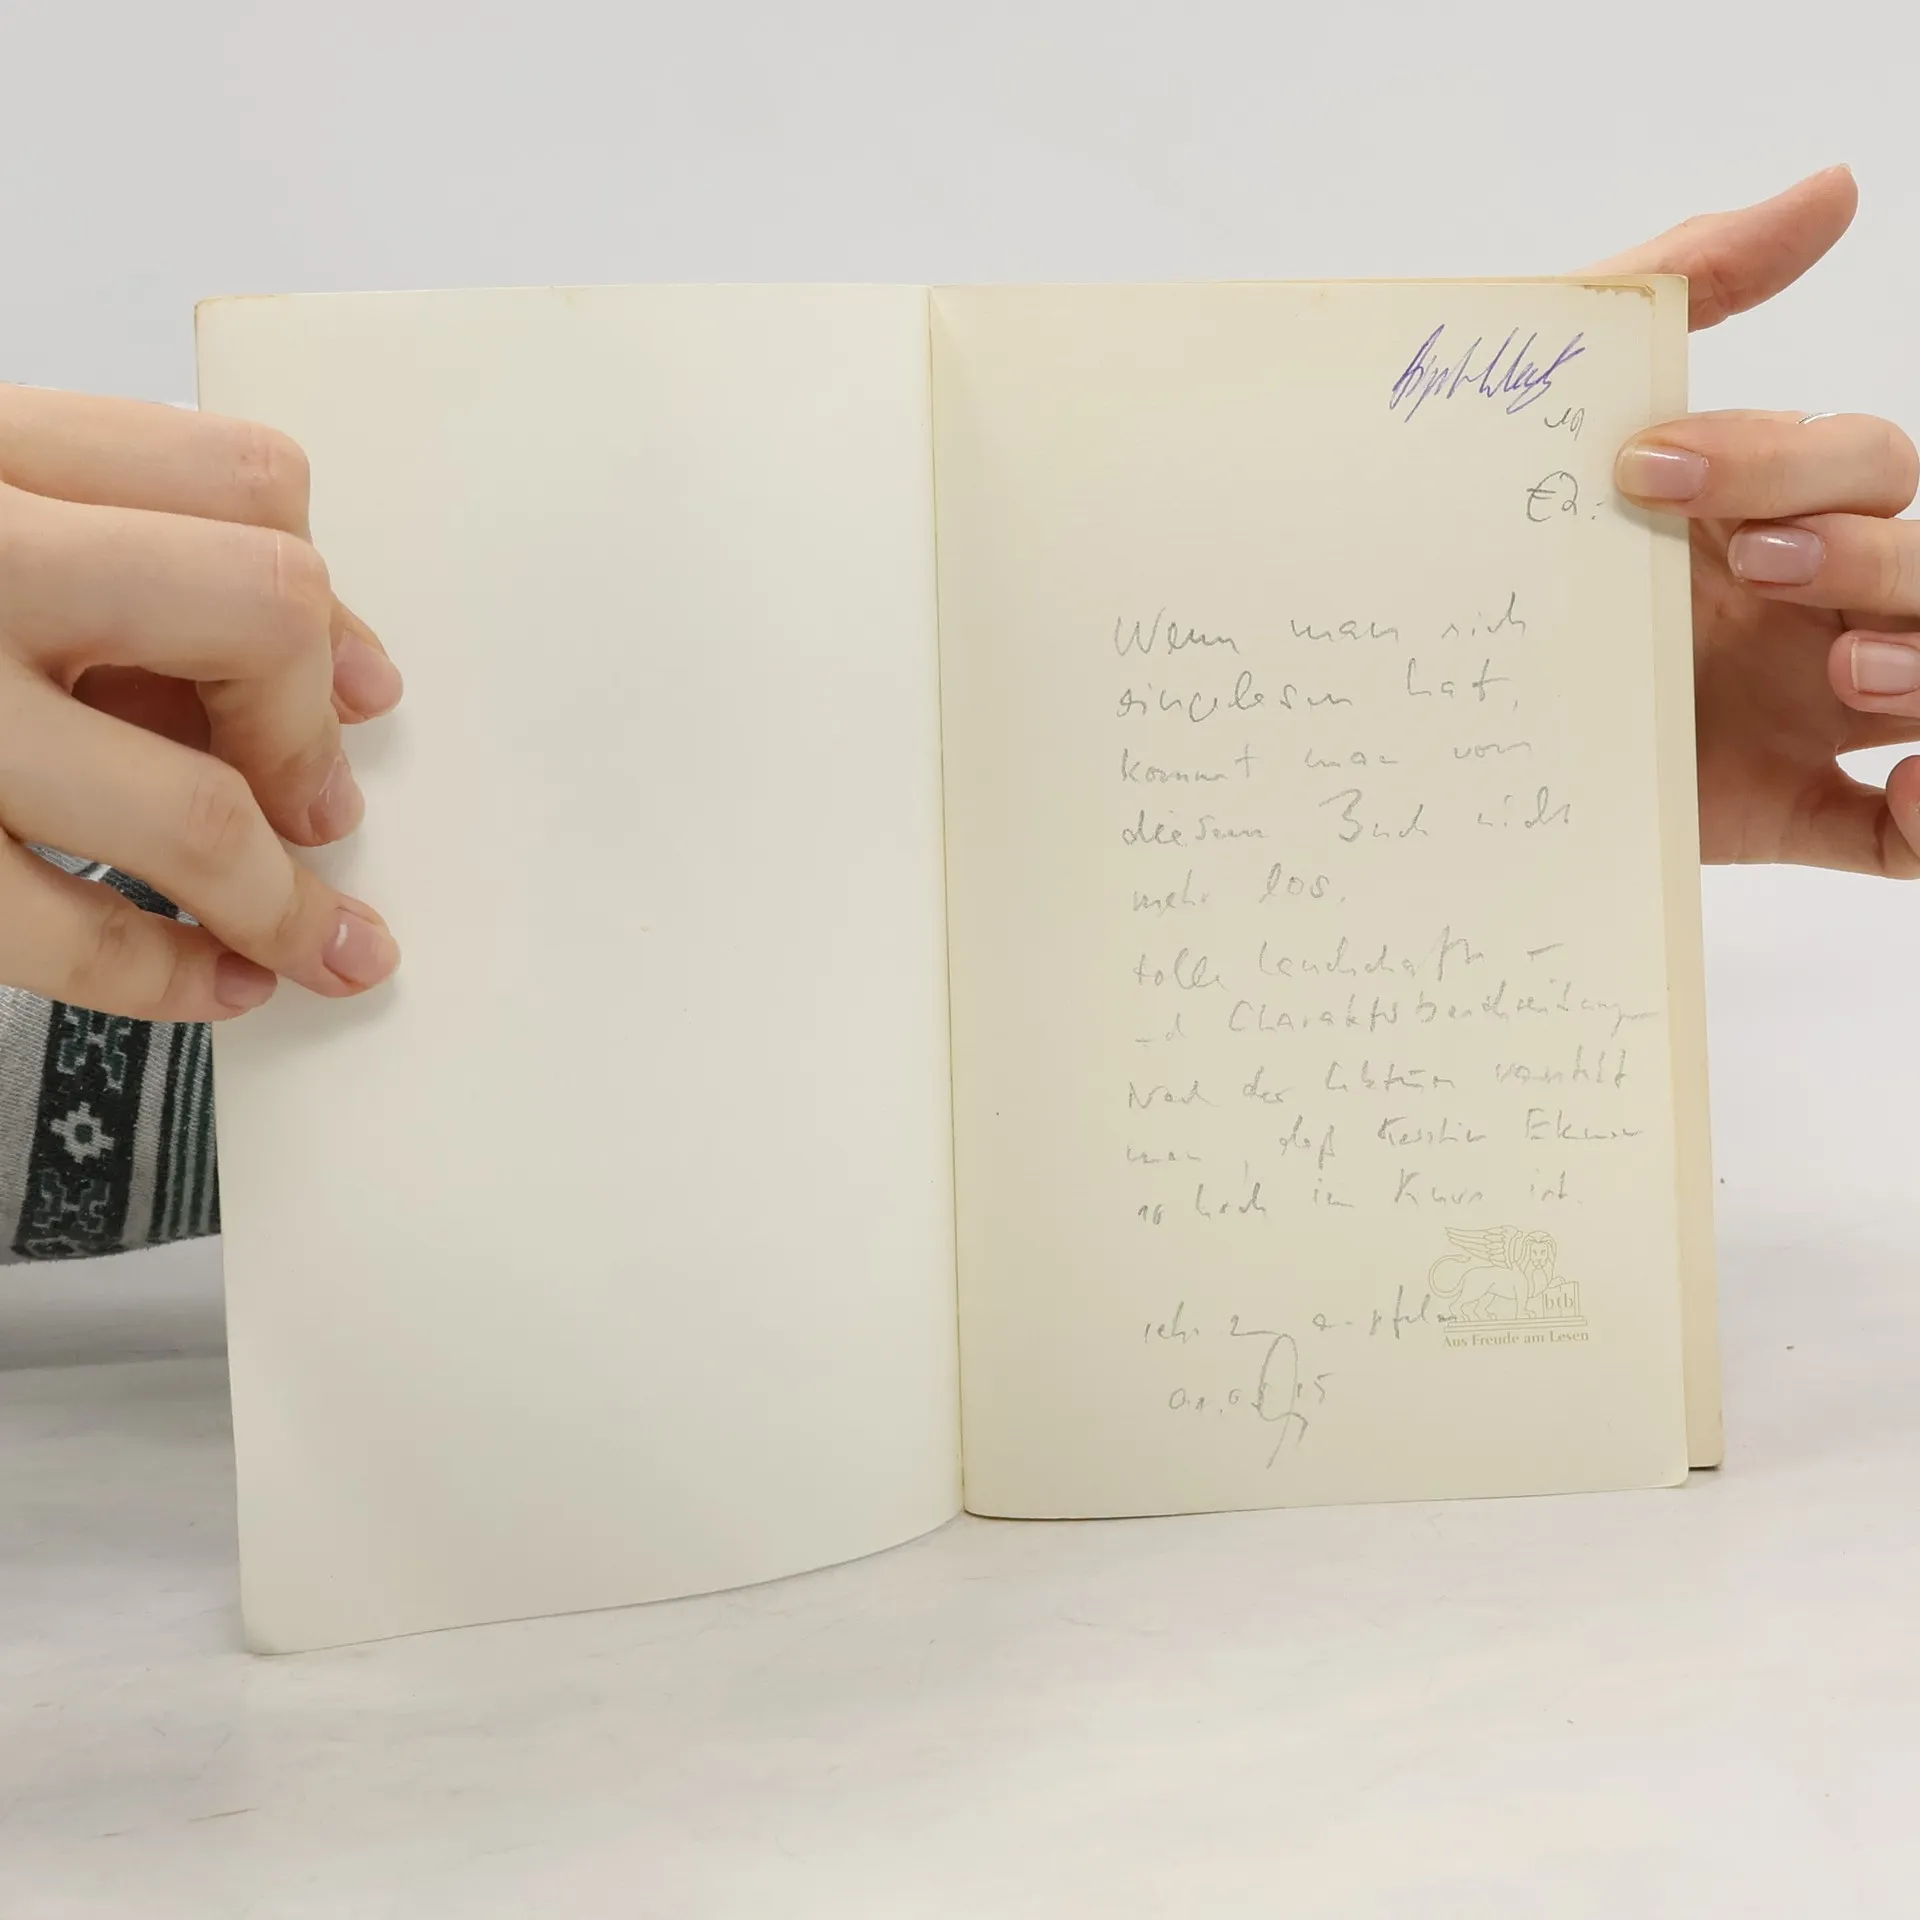 €2.-
Wenn man sich
eingelesen hat,
kommt man von
diesem Buch nicht
mehr los.
tolle Landschafts-
und Charakterbeschreibungen
Nach der Lektüre versteht
man, daß Kerstin Ekman
so hoch im Kurs ist.
btb
sehr zu empfehlen
Aus Freude am Lesen